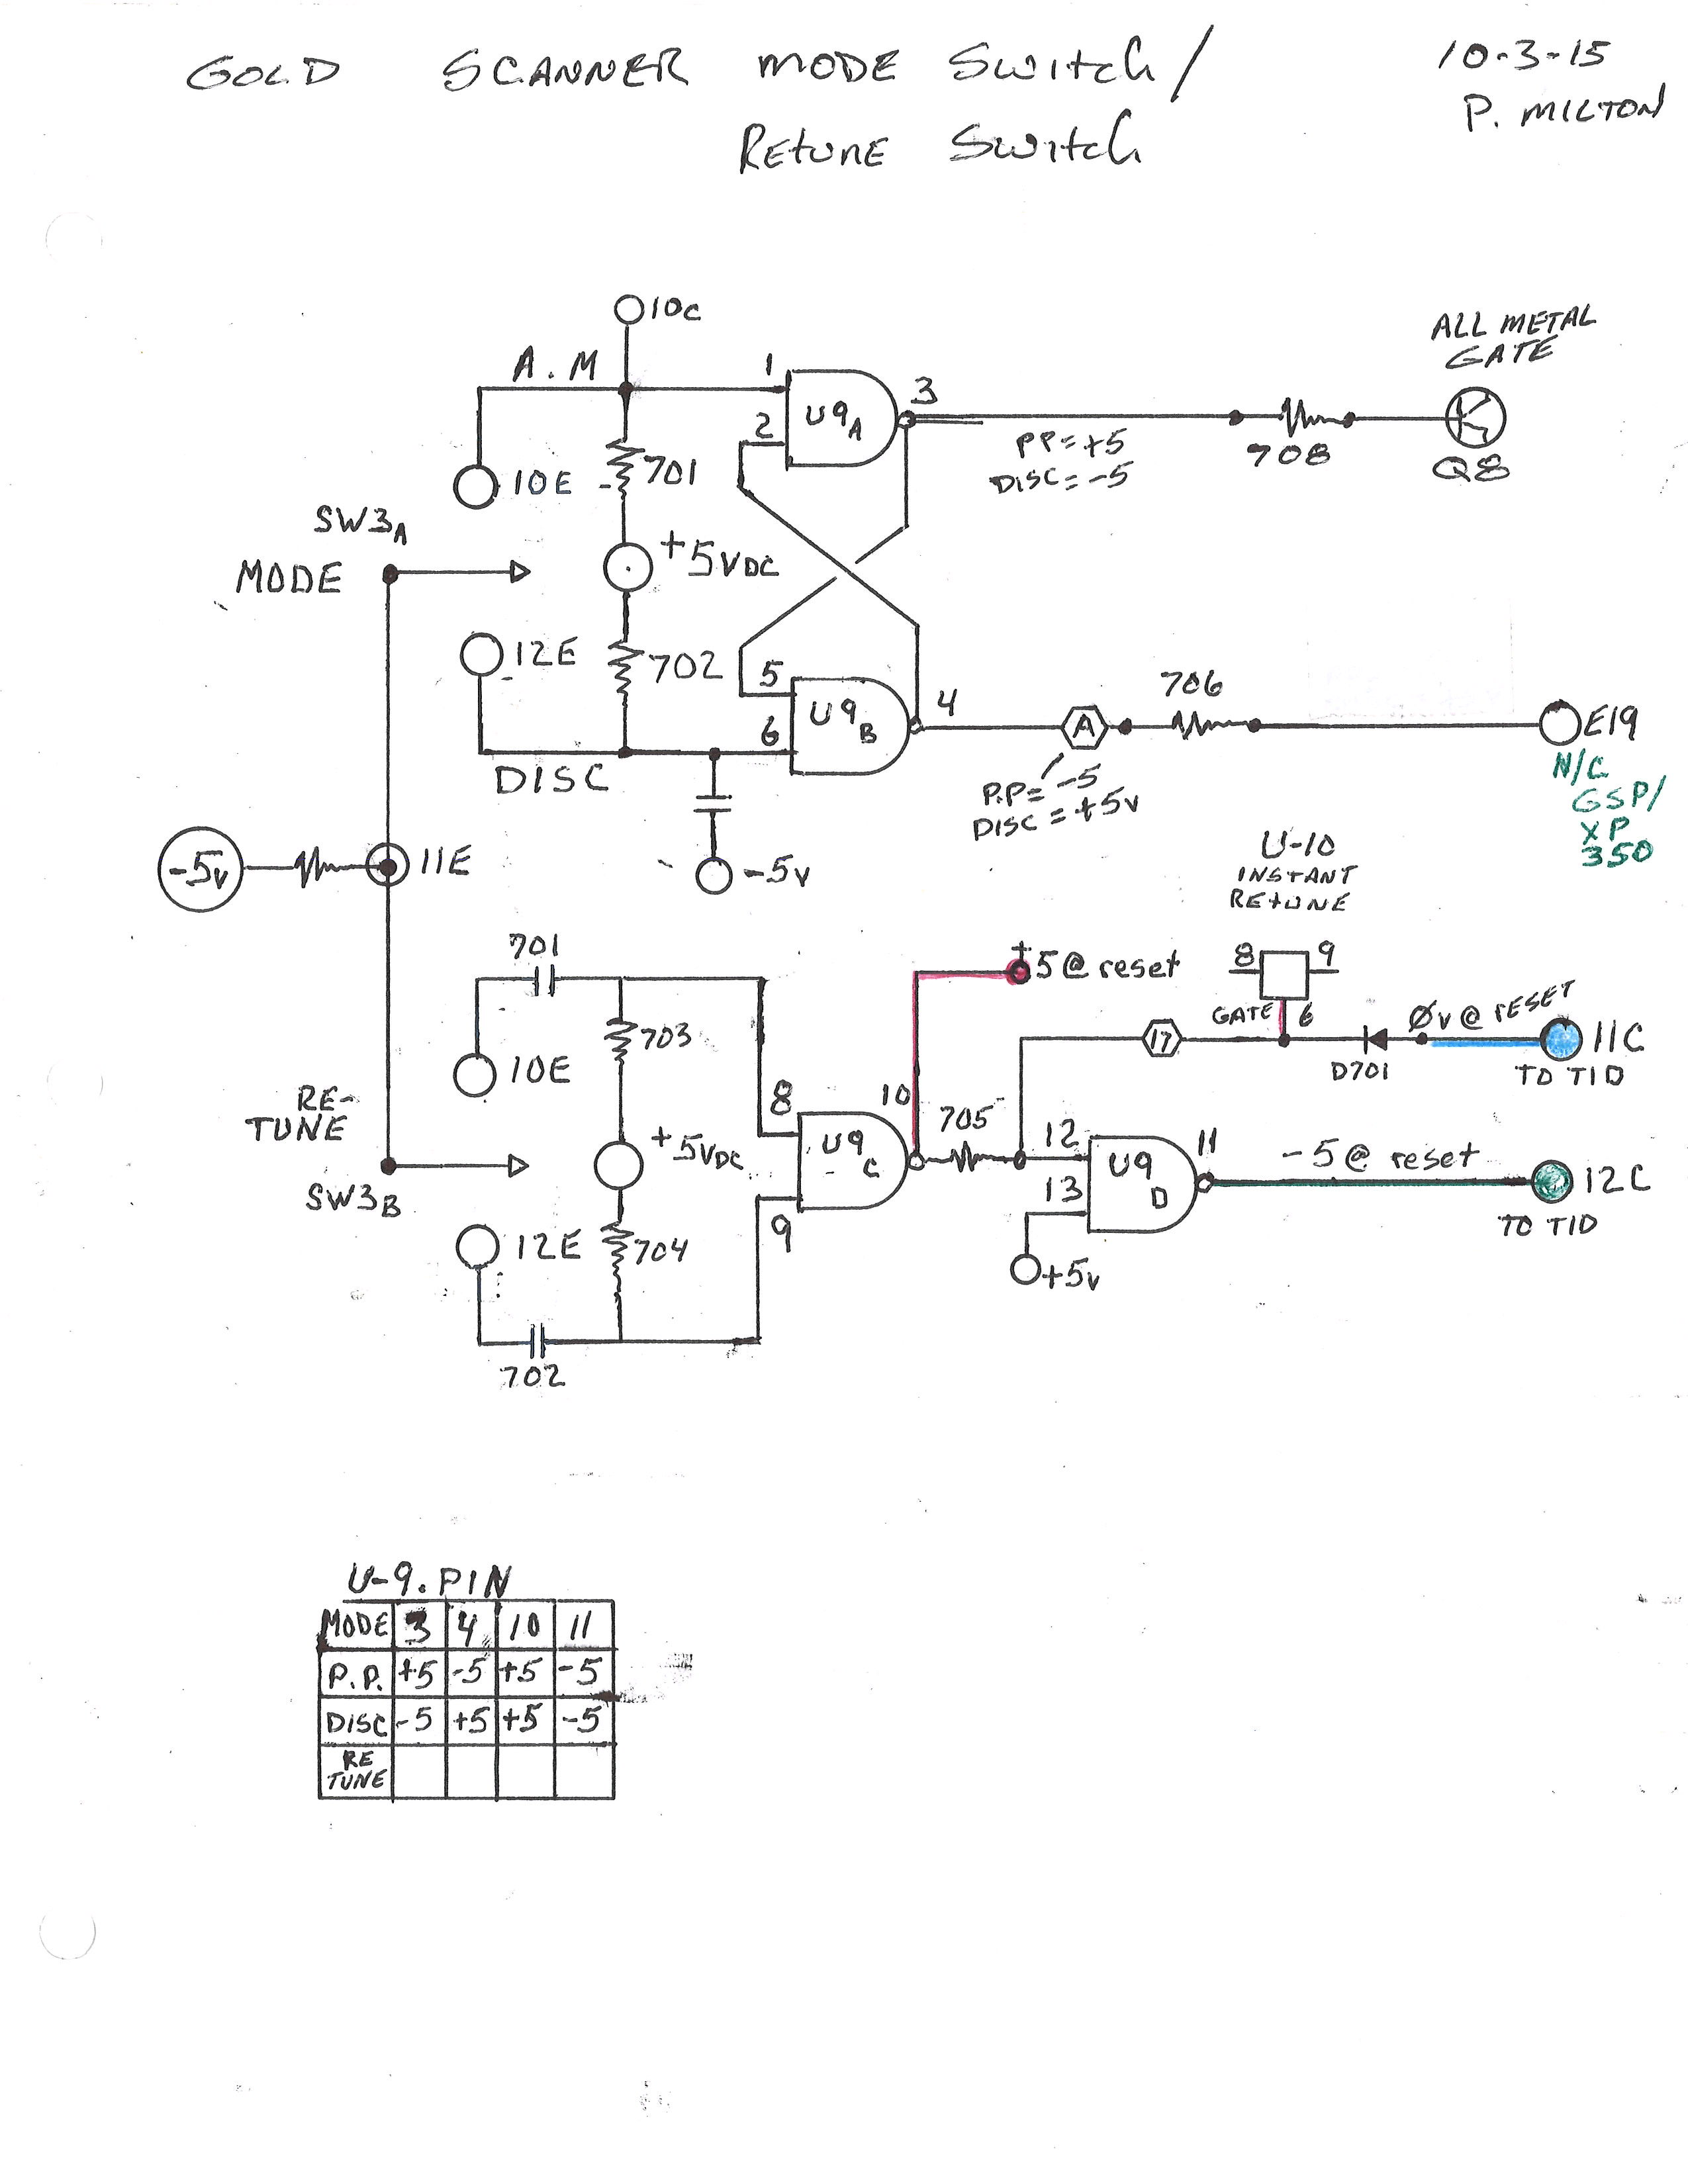 GOLD SCANNER MODE Switch/
Retune Switch
10-3-15
P. MILTON
10C
A.M
1
2
U9A
3
PP=+5
DISC=-5
708
ALL METAL
GATE
Q8
10E
701
SW3A
MODE
+5VDC
12E
702
5
6
U9B
4
A
706
E19
N/C
GSP/
XP
350
DISC
P.P=-5
DISC=+5v
-5v
11E
-5v
U-10
INSTANT
RETUNE
701
+5@ reset
8
9
GATE
6
Øv@ RESET
703
17
D701
11C
TO TID
10E
RE-
TUNE
8
10
705
12
11
-5@ reset
+5VDC
U9C
U9D
13
12C
TO TID
SW3B
9
12E
704
+5v
702
U-9. PIN
MODE 3 4 10 11
P.P. +5 -5 +5 -5
DISC -5 +5 +5 -5
RE
TUNE